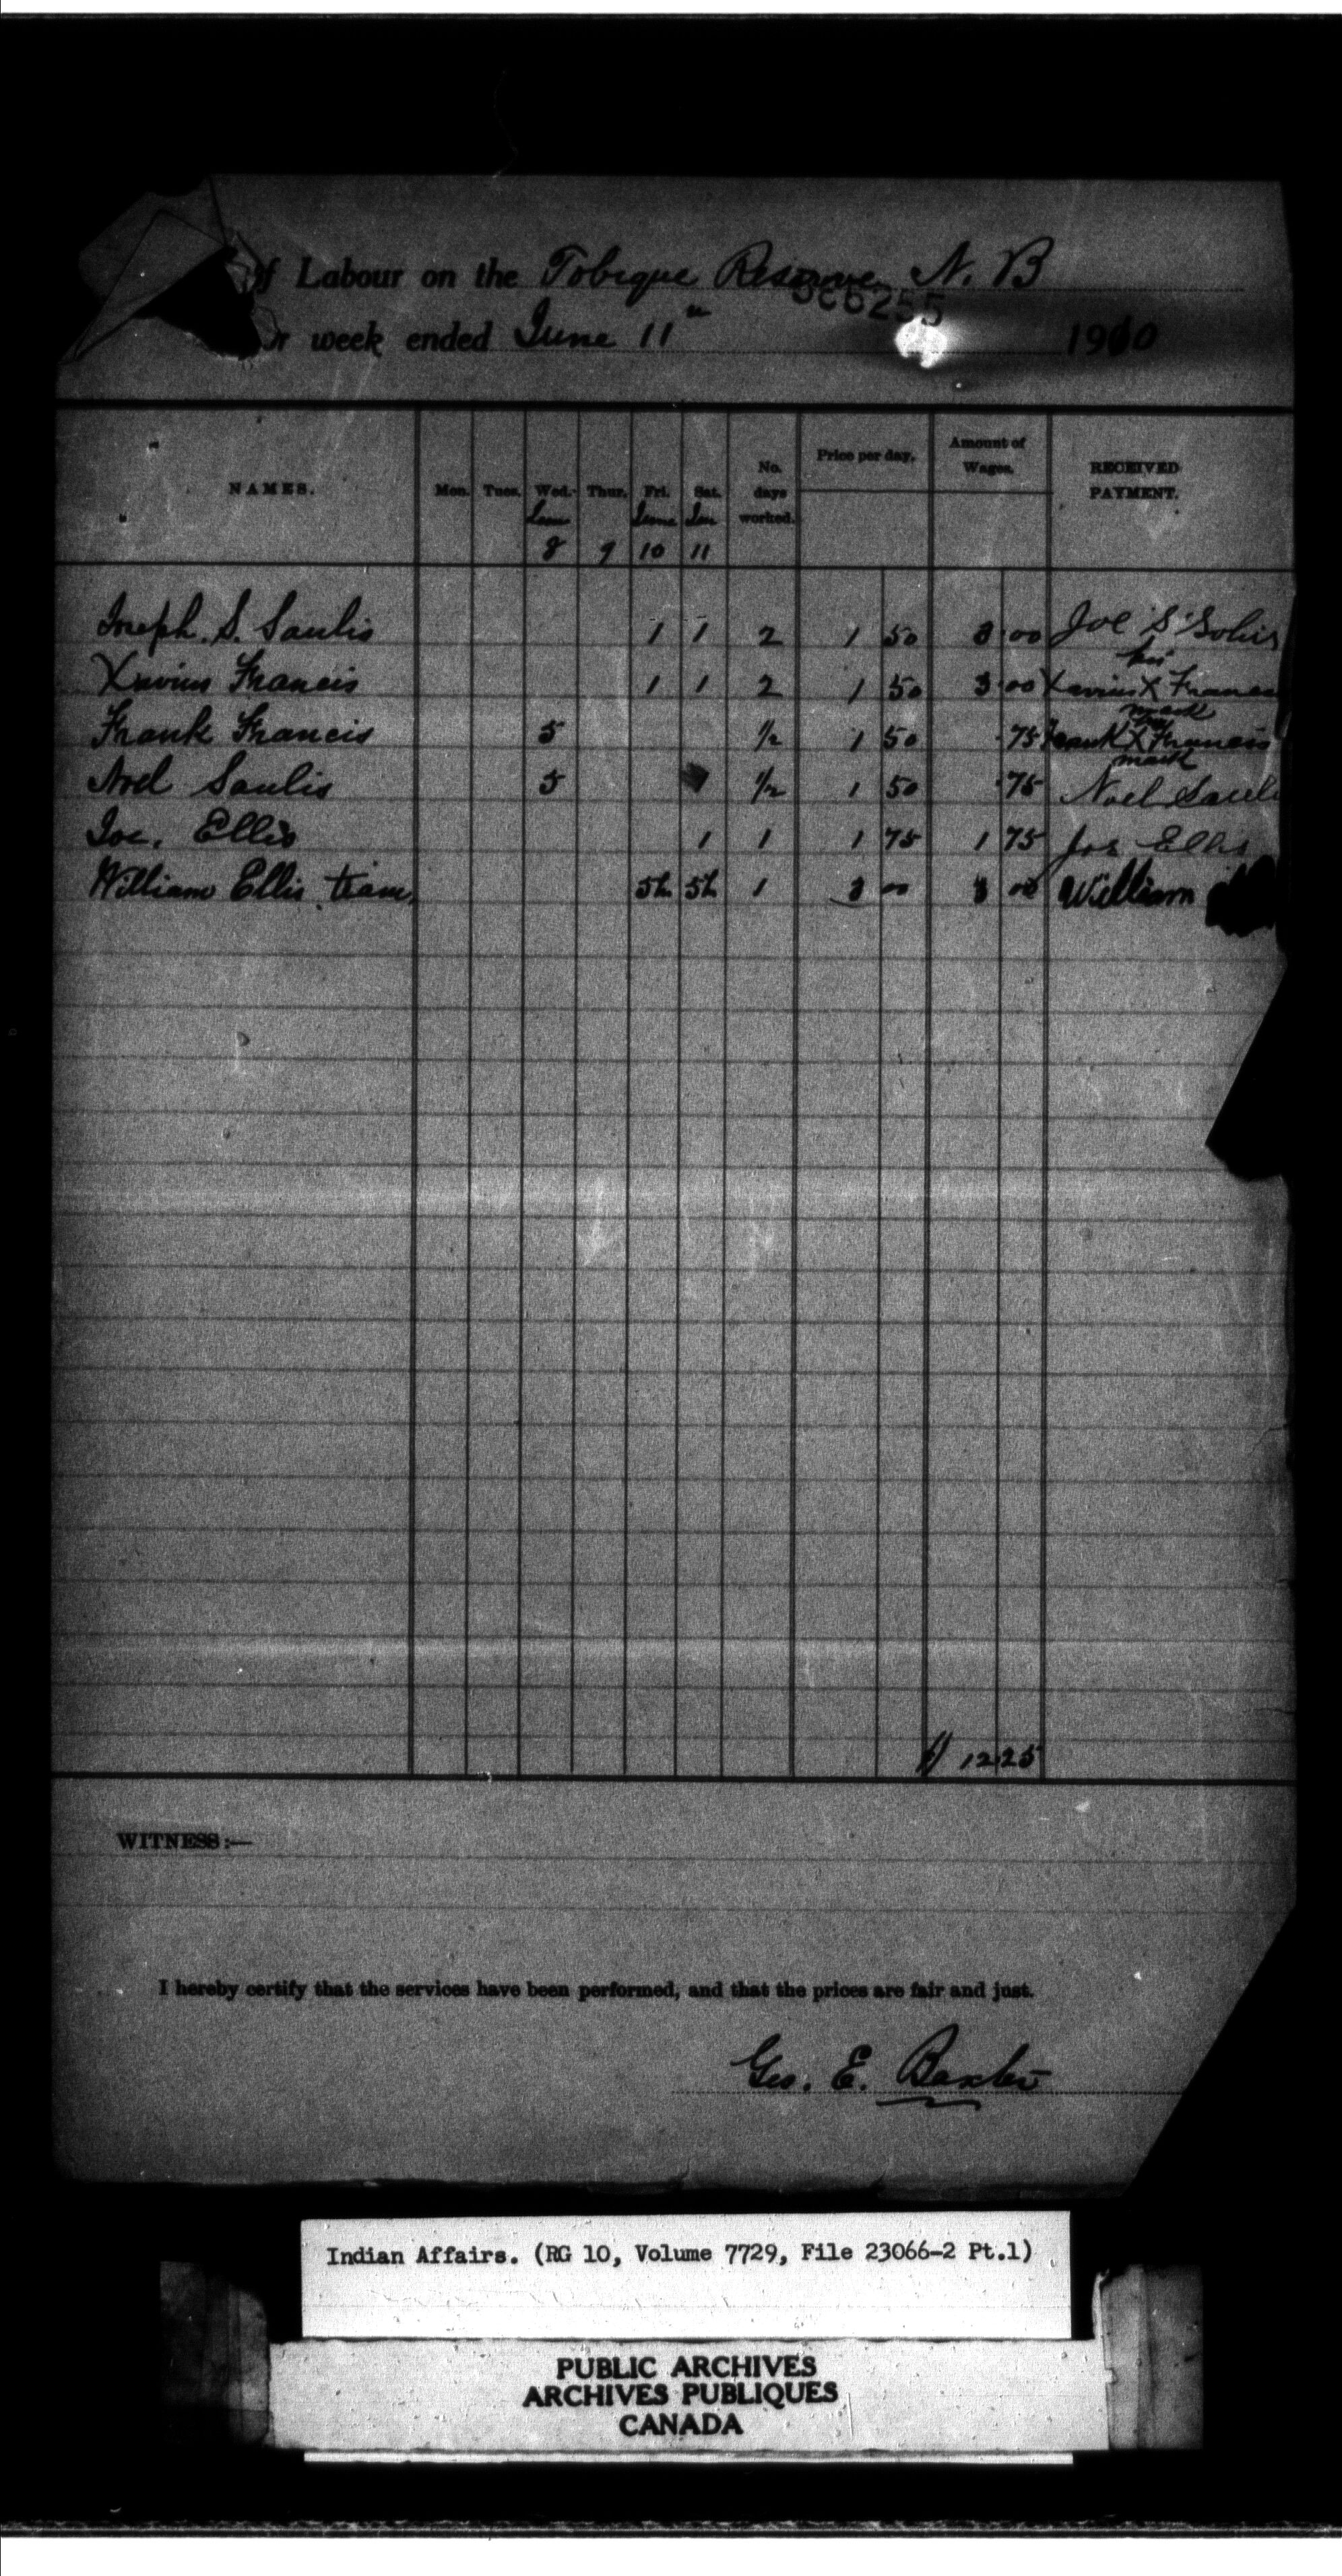 of Labour on the Tobique Reserve, N. B
366255
or week ended June 11th 1910
NAMES. Mon. Tues. Wed. Thur. Fri. Sat. No. days worked. Price per day. Amount of Wages. RECEIVED PAYMENT.
June June Jun
8 9 10 11
Joseph. S. Saulis 1 1 2 1 50 3 00 Joe S Solis
Xavier Francis 1 1 2 1 50 3 00 Xavier his X mark Francis
Frank Francis 5 1/2 1 50 .75 Frank his X mark Francis
Noel Saulis 5 1/2 1 50 .75 Noel Sauli
Joe. Ellis 1 1 1 75 1 75 Jos Ellis
William Ellis team, 5h 5h 1 3 00 3 00 William
$ 12 25
WITNESS:—
I hereby certify that the services have been performed, and that the prices are fair and just.
Geo. E. Baxter
Indian Affairs. (RG 10, Volume 7729, File 23066-2 Pt.1)
PUBLIC ARCHIVES
ARCHIVES PUBLIQUES
CANADA